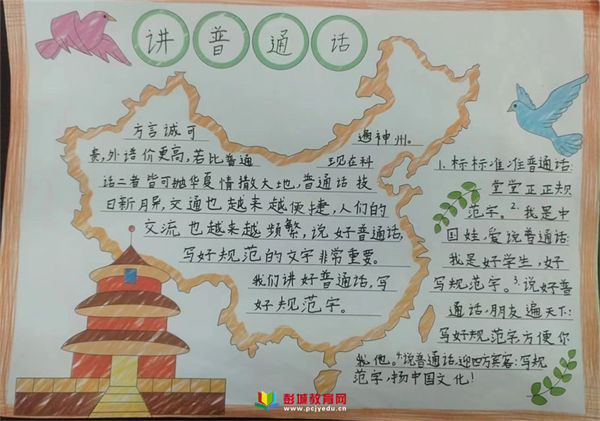 讲普通话
方言诚可
遍神州。
贵,外语价更高,若比普通
现在科
话二者皆可抛华夏情撒大地,普通话技
日新月异,交通也越来越便捷,人们的
交流也越来越频繁,说好普通话,
写好规范的文字非常重要。
我们讲好普通话,写
好规范字。
1.标标准准普通话:
堂堂正正规
范字。2.我是中
国娃,爱说普通话:
我是好学生,好
写规范字。3.说好普
通话,朋友遍天下:
写好规范字方便你
我他。4.说普通话,迎四方宾客:写规
范字,扬中国文化!
彭城教育网
www.pcjyedu.cn